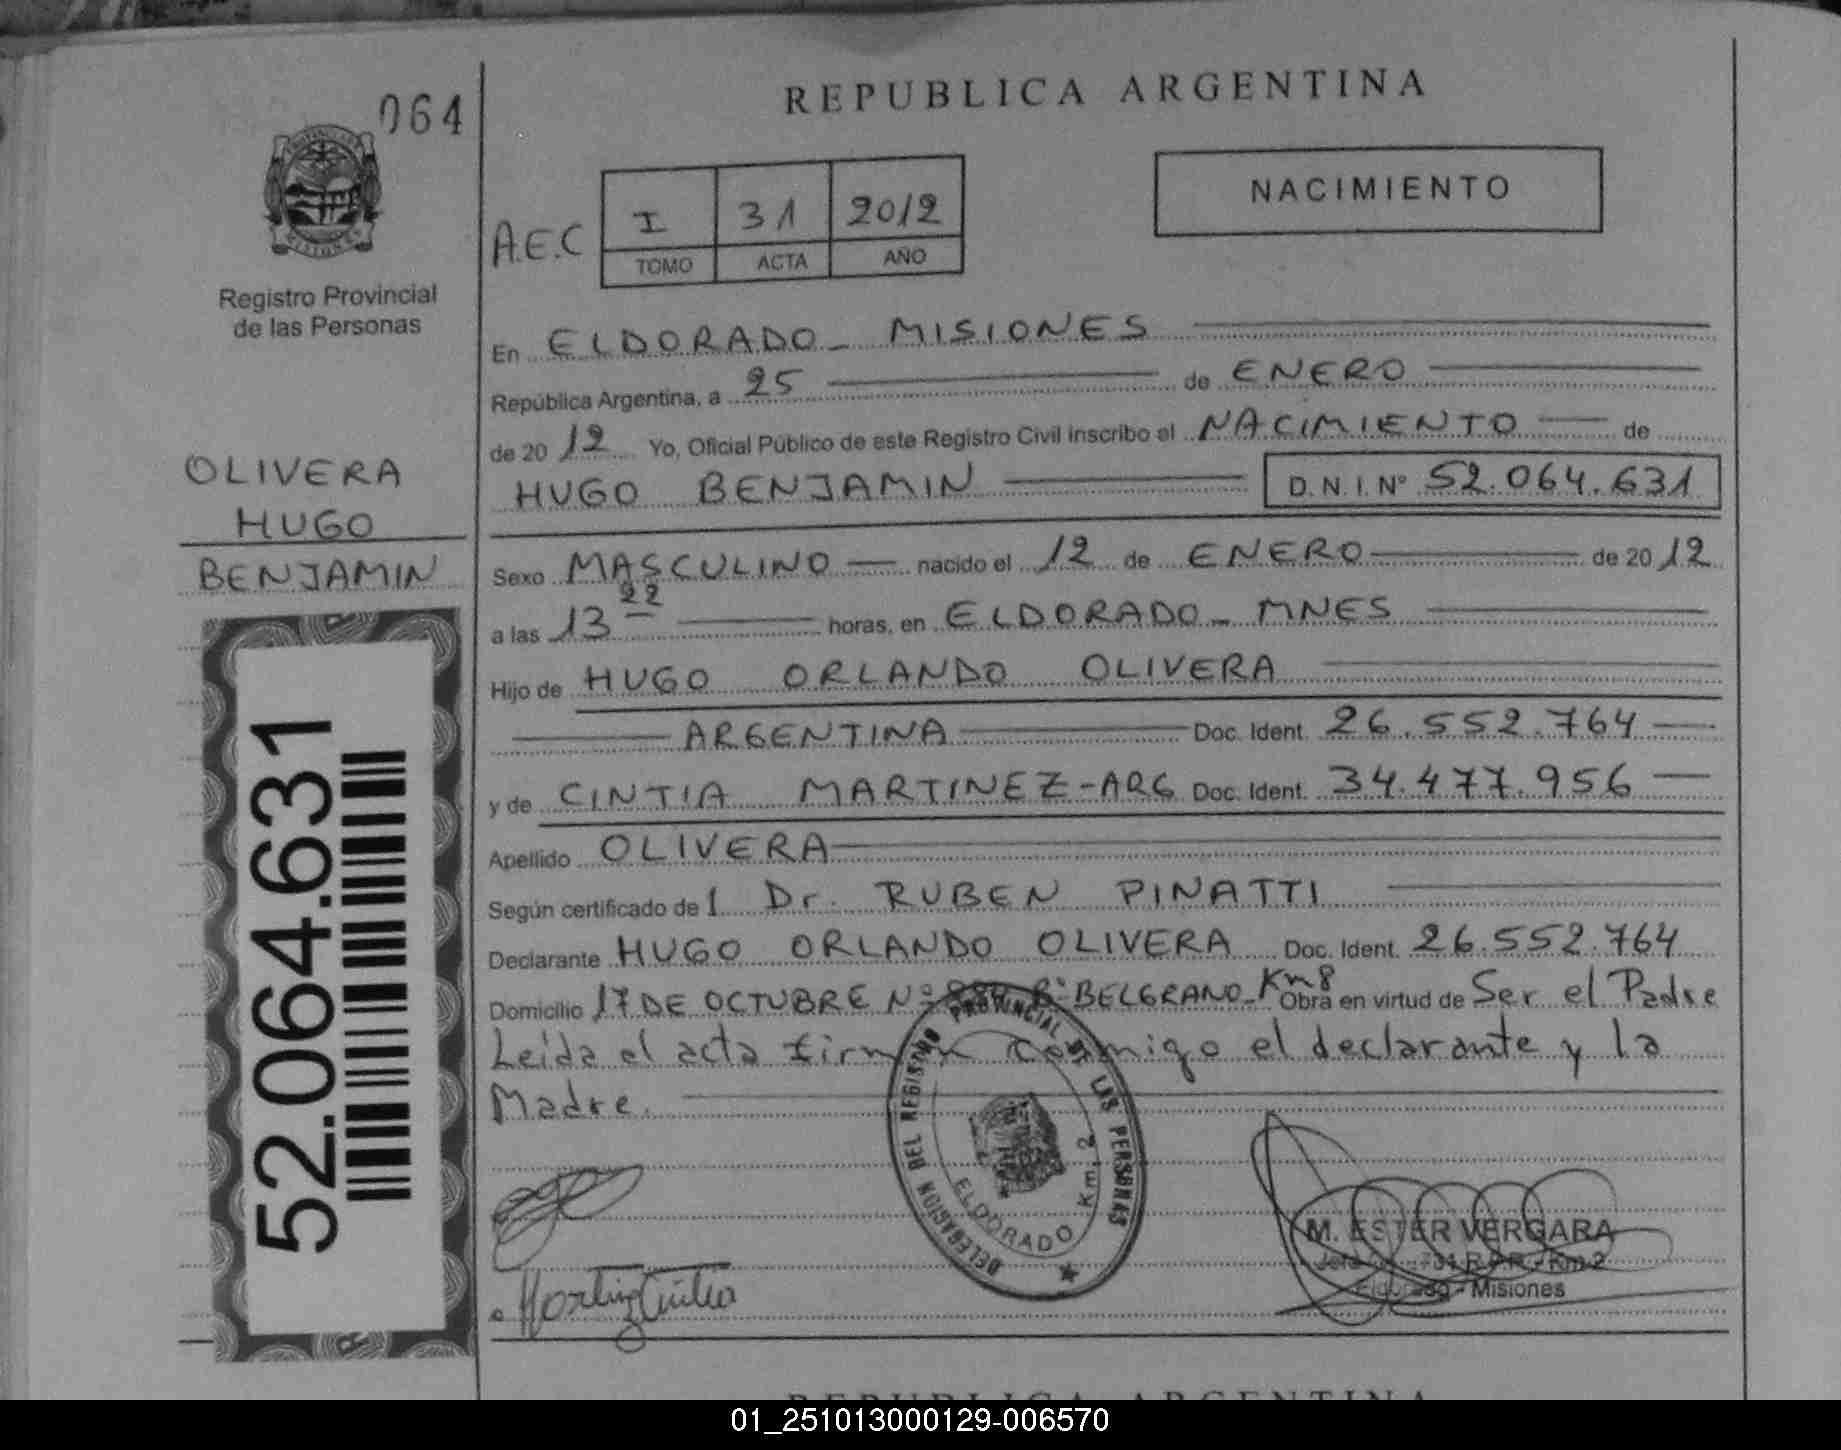 064
Registro Provincial
de las Personas
OLIVERA
HUGO
BENJAMIN
52.064.631
REPUBLICA ARGENTINA
NACIMIENTO
A.E.C
I 31 2012
TOMO ACTA AÑO
En ELDORADO - MISIONES
República Argentina, a 25 de ENERO
de 2012 Yo, Oficial Público de este Registro Civil inscribo el NACIMIENTO de
HUGO BENJAMIN D.N.I. Nº 52.064.631
Sexo MASCULINO nacido el 12 de ENERO de 2012
a las 13 22 horas, en ELDORADO - MNES
Hijo de HUGO ORLANDO OLIVERA
ARGENTINA Doc. Ident. 26.552.764
y de CINTIA MARTINEZ-ARG Doc. Ident. 34.477.956
Apellido OLIVERA
Según certificado de l Dr. RUBEN PINATTI
Declarante HUGO ORLANDO OLIVERA Doc. Ident. 26.552.764
Domicilio 17 DE OCTUBRE Nº Bº BELGRANO - Km 8 Obra en virtud de Ser el Padre
Leida el acta firman conmigo el declarante y la
Madre.
DELEGACION DEL REGISTRO PROVINCIAL DE LAS PERSONAS
ELDORADO Km. 2
M. ESTER VERGARA
R.P.P. - Km 2
Eldorado - Misiones
REPUBLICA ARGENTINA
01_251013000129-006570